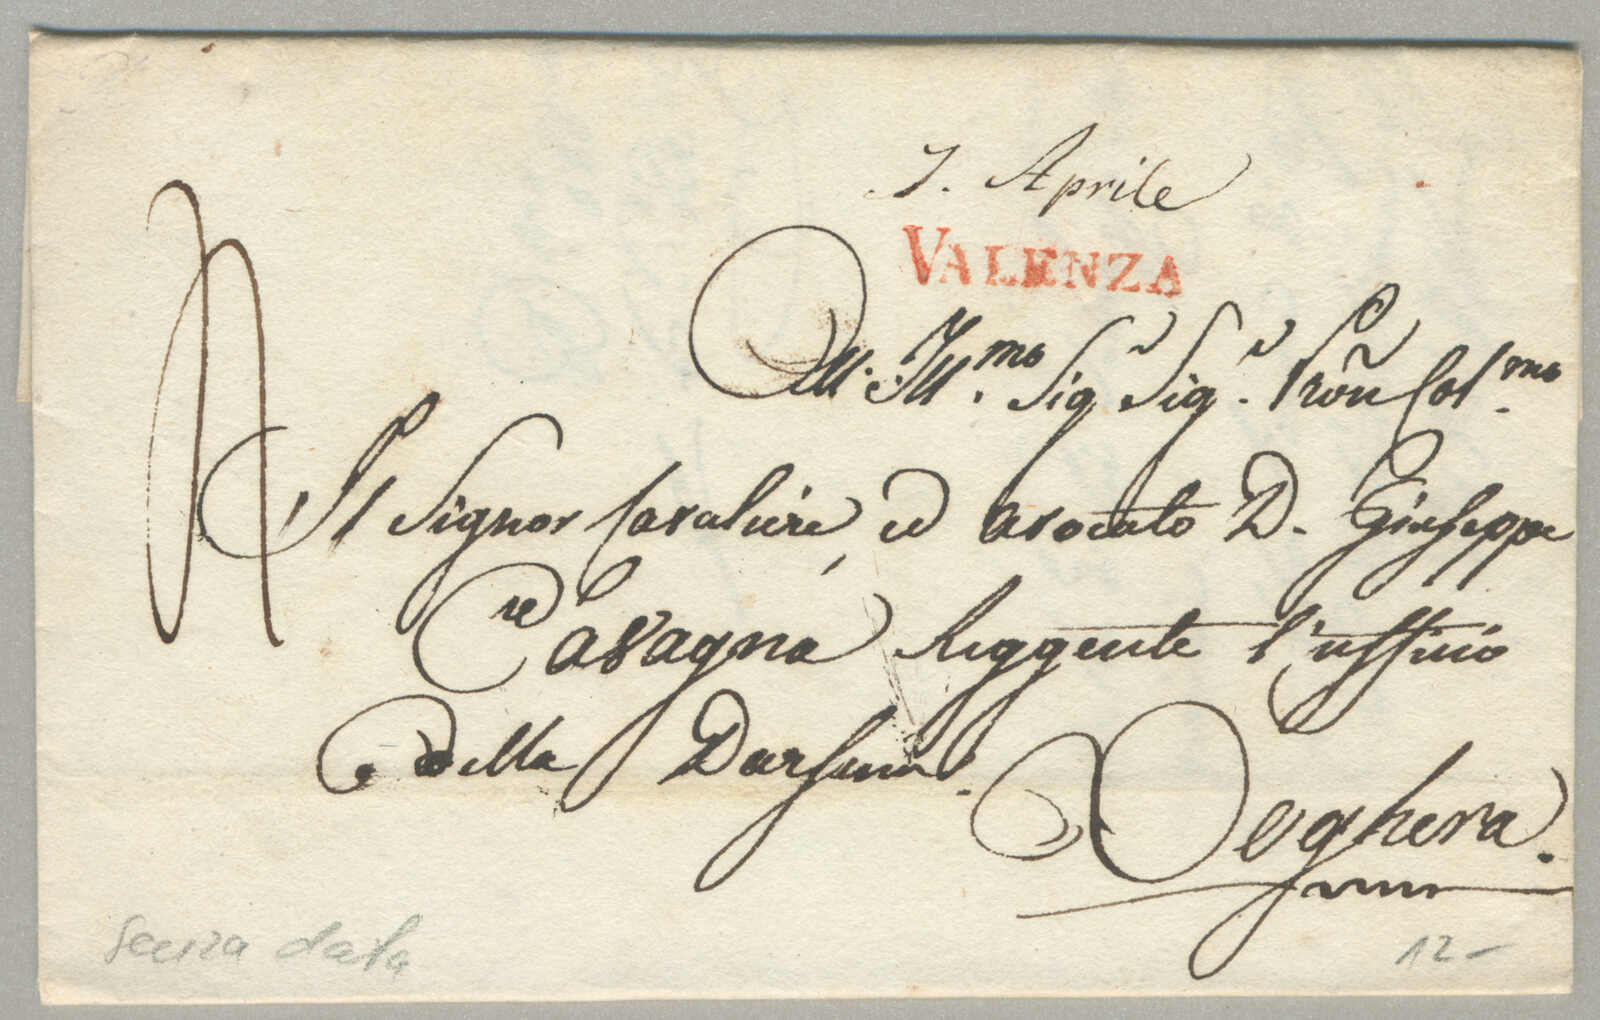 7. Aprile
VALENZA
All. Ill.mo Sig.r Sig.r Pron Col.mo
Il Signor Cavaliere, ed avocato D. Giuseppe
Cavagna Reggente l'uffizio
della Darsena.
Voghera.
senza data
12-